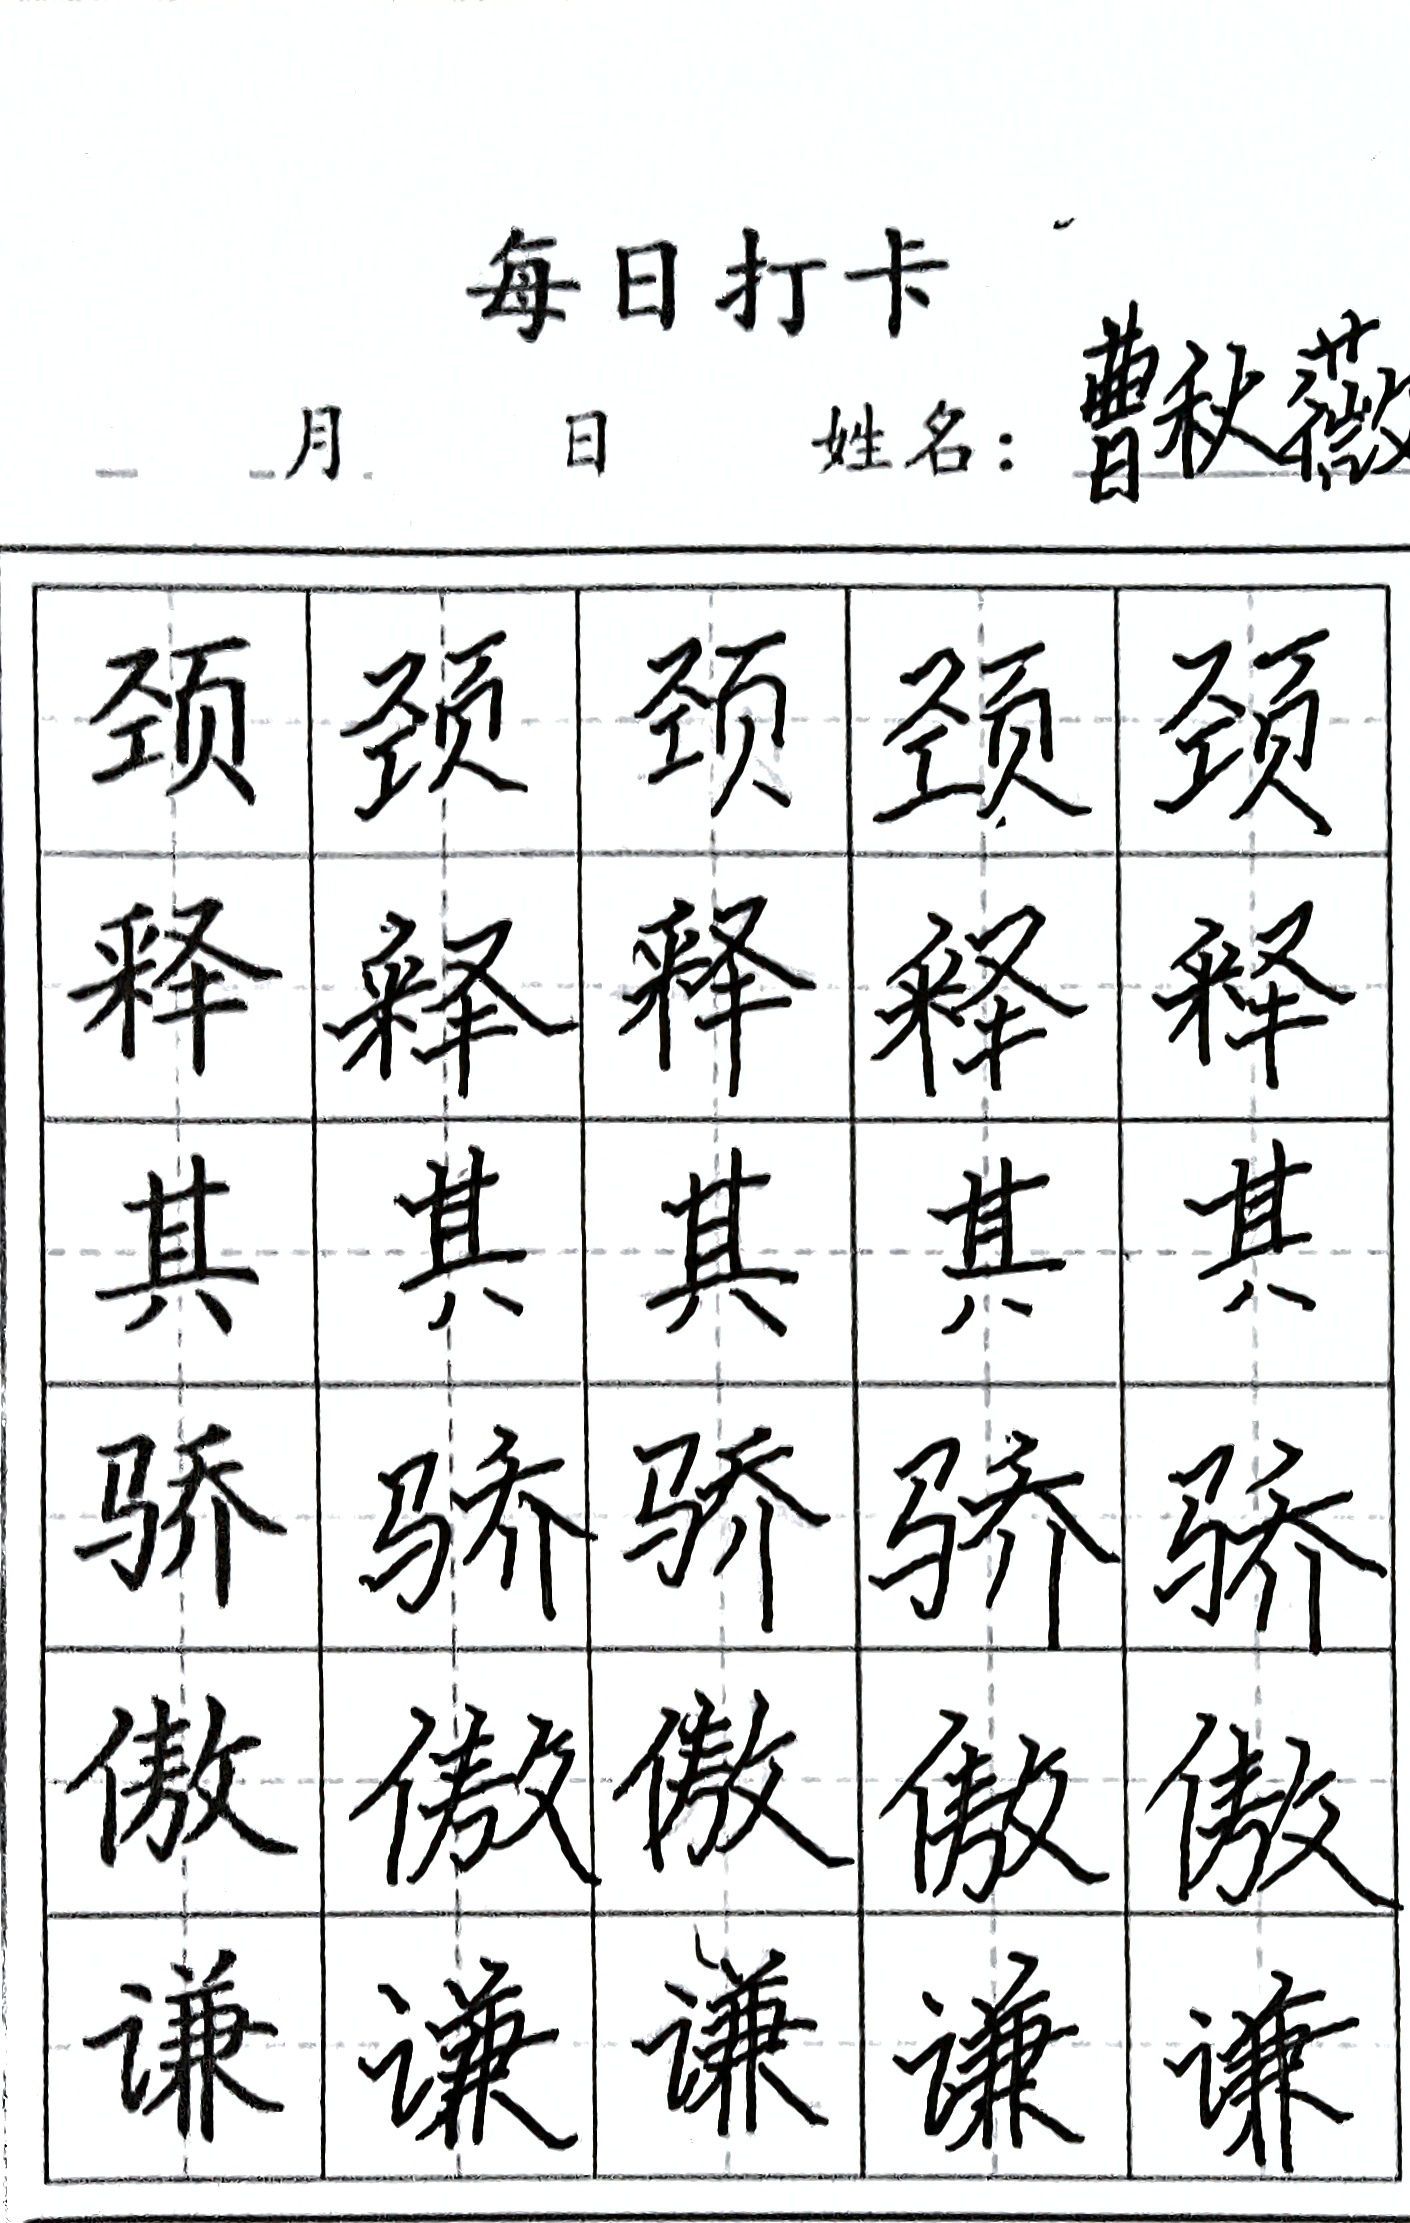 每日打卡
月 日 姓名：曹秋薇
颈 颈 颈 颈 颈
释 释 释 释 释
其 其 其 其 其
骄 骄 骄 骄 骄
傲 傲 傲 傲 傲
谦 谦 谦 谦 谦